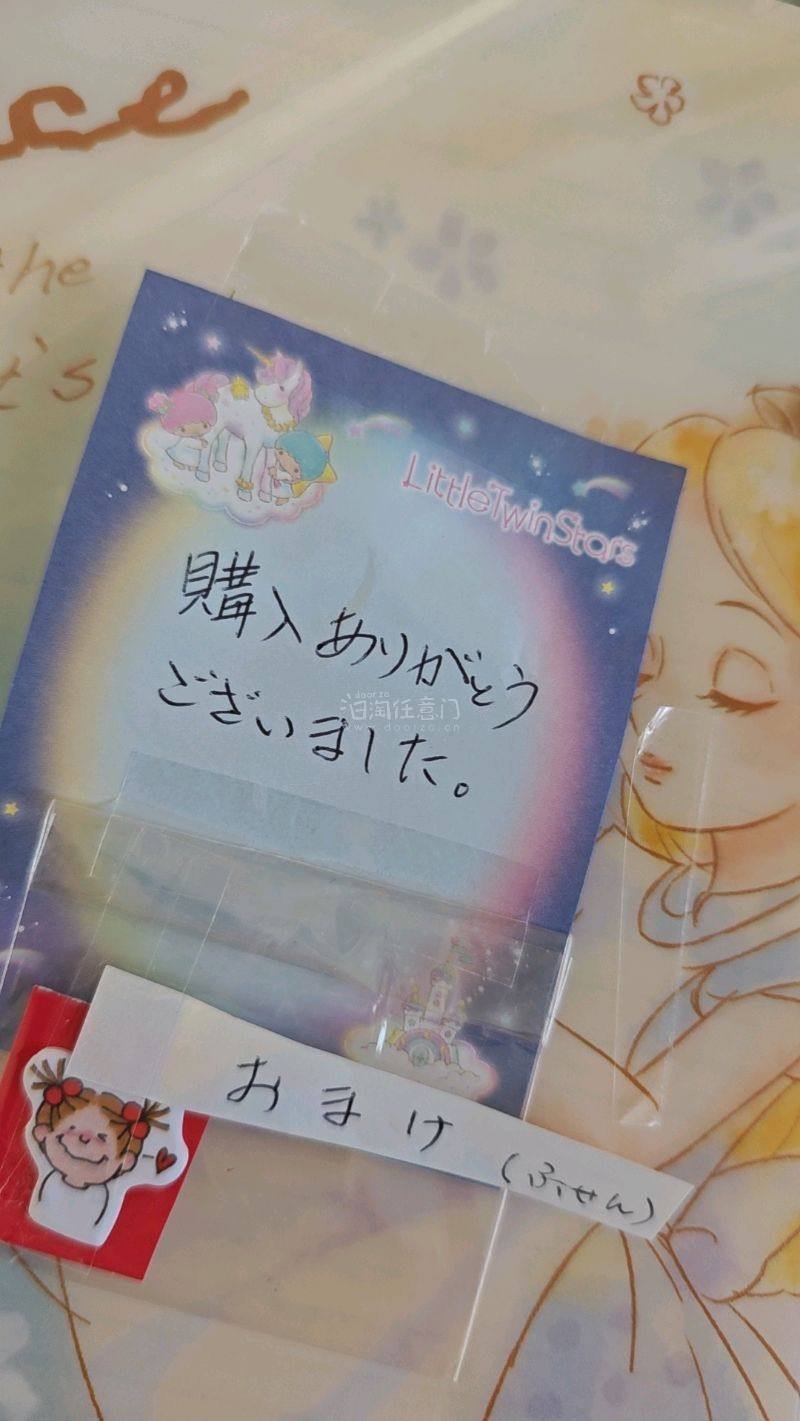 the
t's
LittleTwinStars
購入ありがとう
ございました。
doorzo
汩淘任意门
www.doorzo.cn
おまけ
(ふせん)